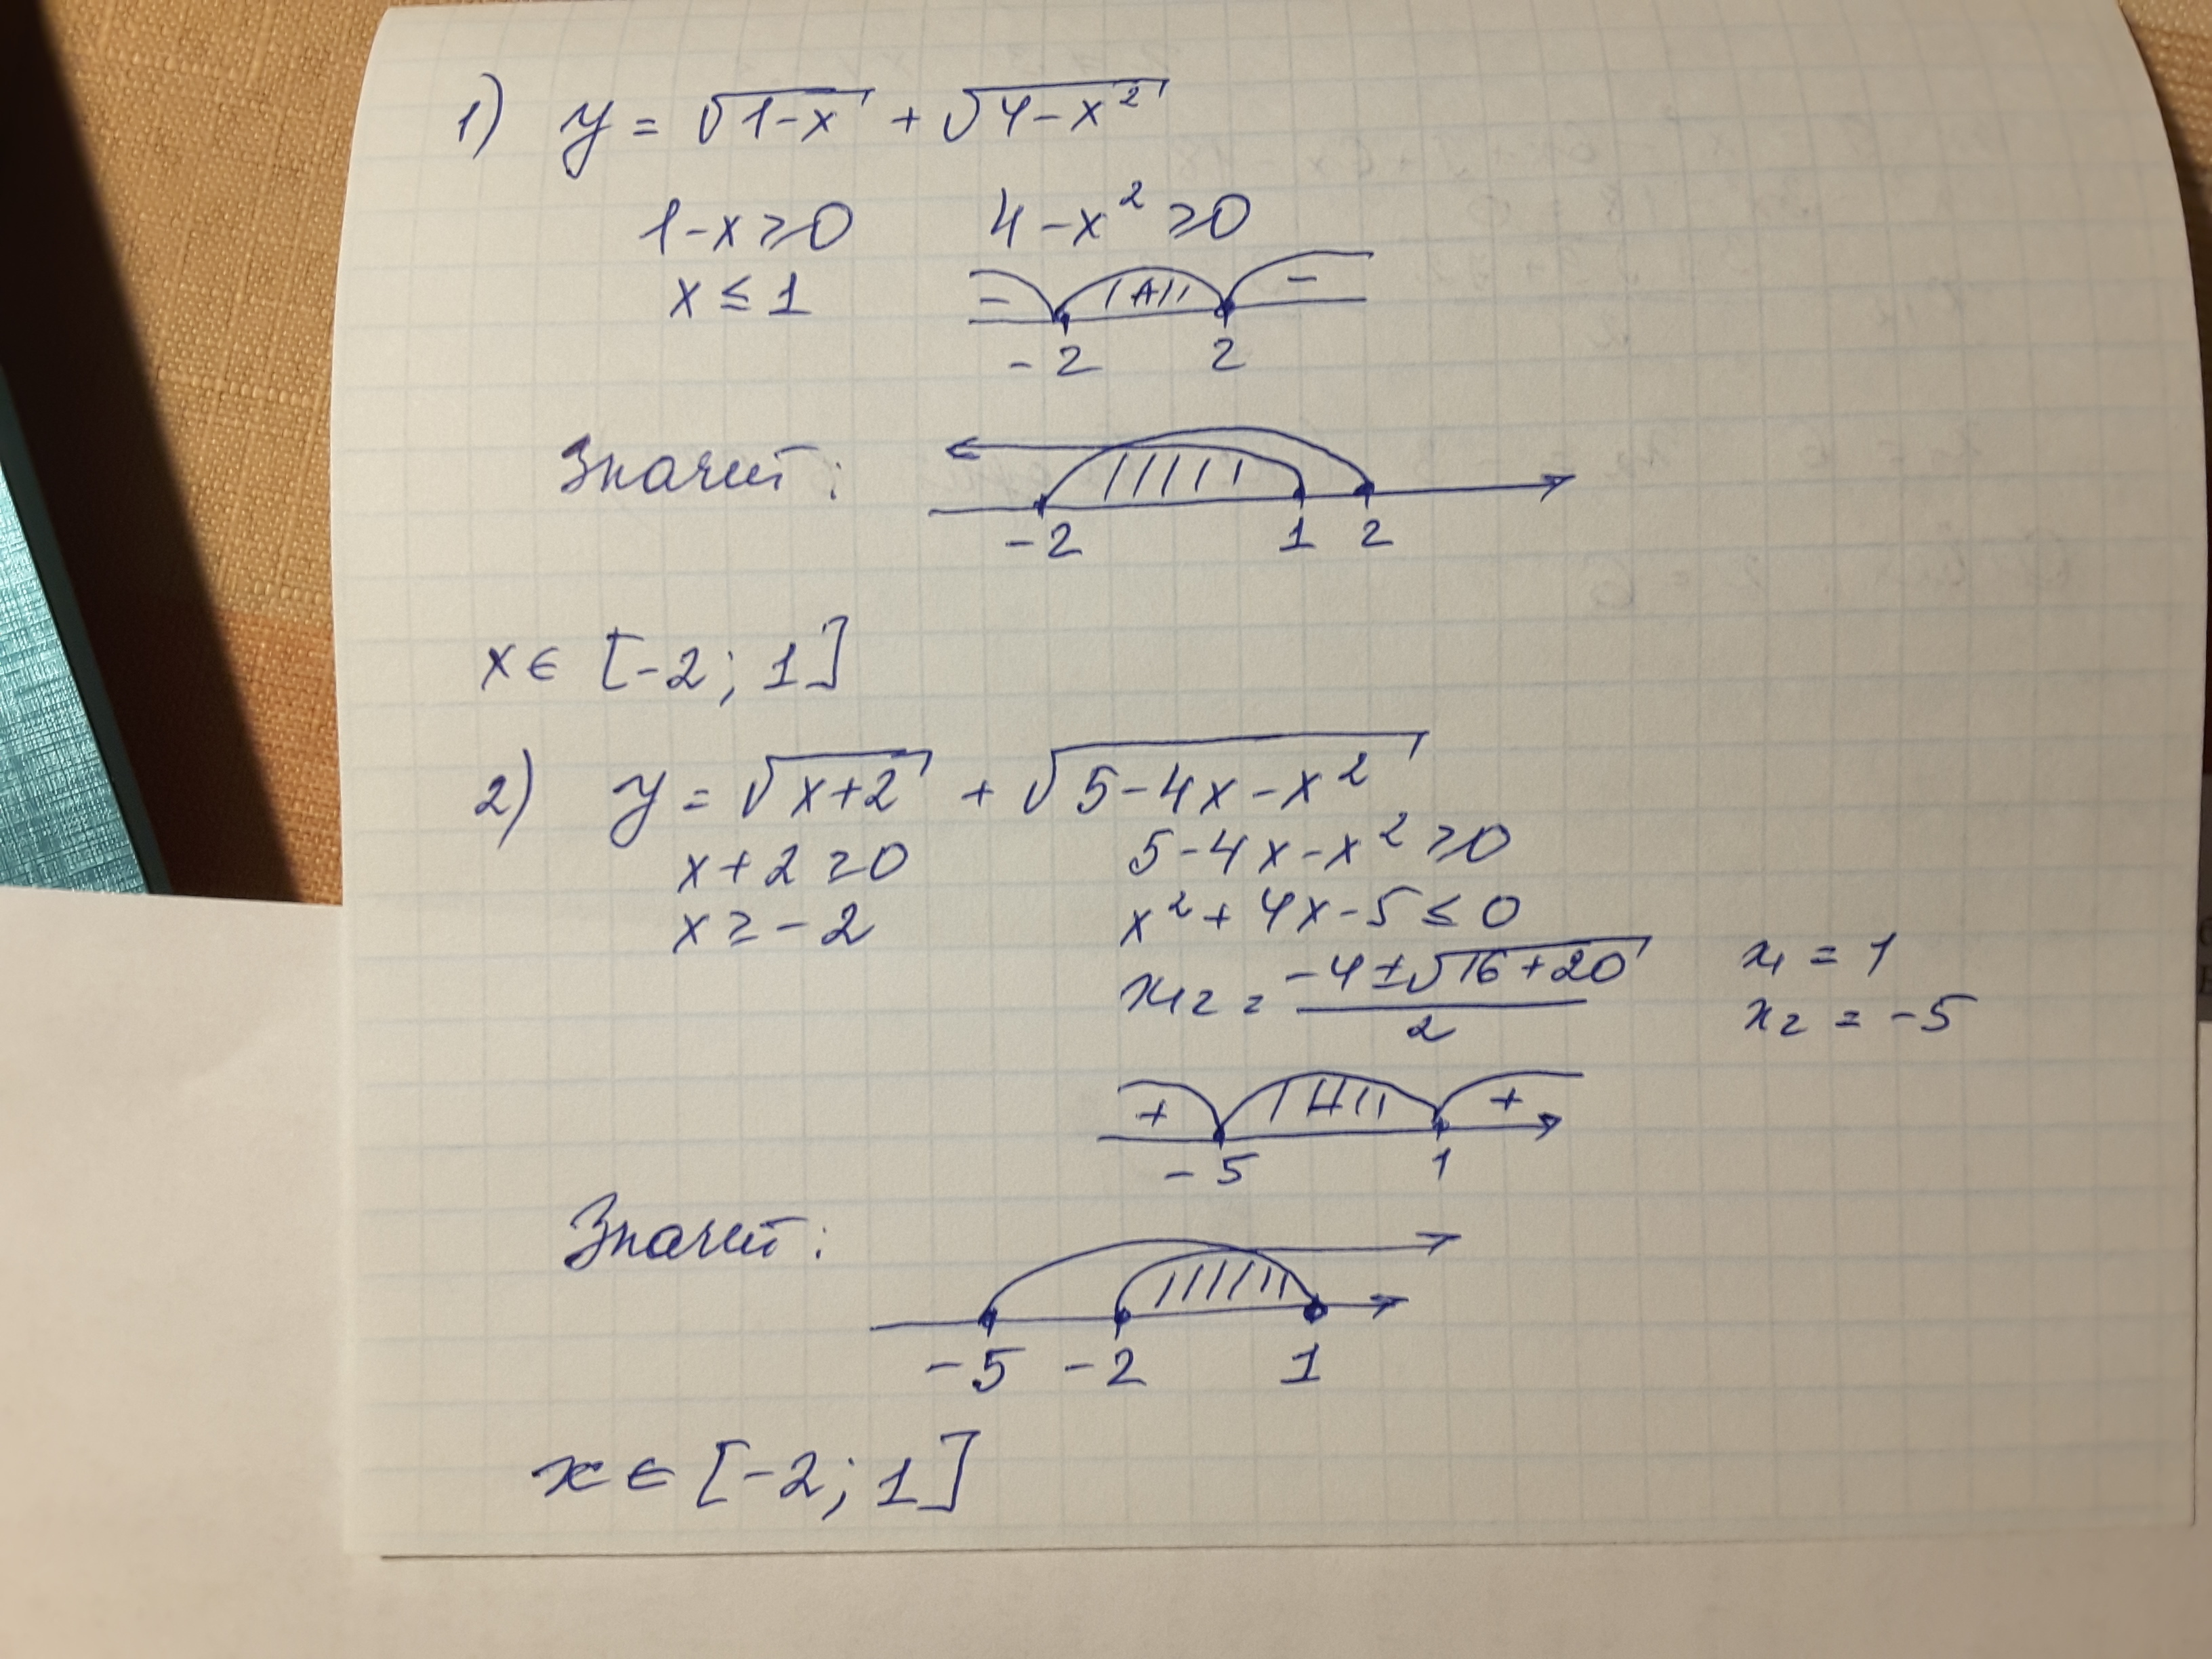 1) y = √1-x + √4-x²
1-x ≥ 0 4-x² ≥ 0
x ≤ 1 - + -
-2 2
Значит:
-2 1 2
x ∈ [-2; 1]
2) y = √x+2 + √5-4x-x²
x+2 ≥ 0 5-4x-x² ≥ 0
x ≥ -2 x²+4x-5 ≤ 0
x₁₂ = (-4±√16+20)/2 x₁ = 1
x₂ = -5
+ - +
-5 1
Значит:
-5 -2 1
x ∈ [-2; 1]